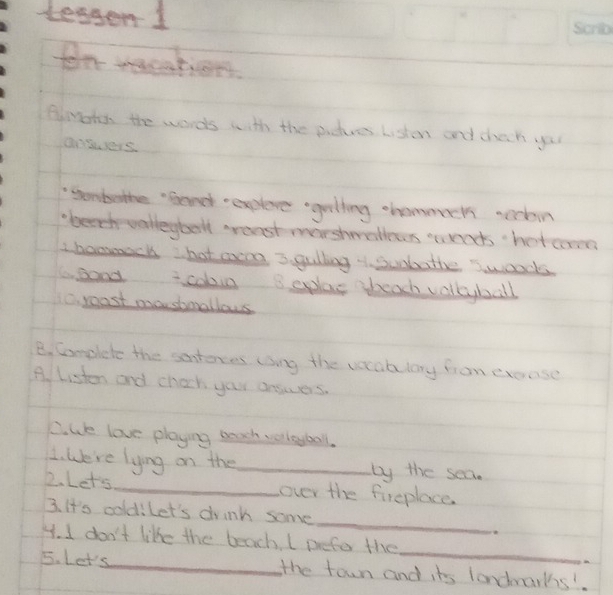 Lesson 1
Scrib
On vacation.
A. Match the words with the pictures. Listen and check your
answers.
• Sunbathe • Sand • explore • grilling • hammock • cabin
• beach volleyball • roast marshmallows • woods • hot cocoa
1. hammock 2. hot cocoa 3. gulling 4. Sunbathe 5. woods
6. Sand 7. cabin 8. explore 9. beach volleyball
10. roast marshmallows
B. Complete the sentences using the vocabulary from exercise
A. Listen and check your answers.
0. We love playing beach volleyball.
1. We're lying on the ____________ by the sea.
2. Let's ____________ over the fireplace.
3. It's cold! Let's drink some ____________.
4. I don't like the beach, I prefer the ____________.
5. Let's ____________ the town and its landmarks!.